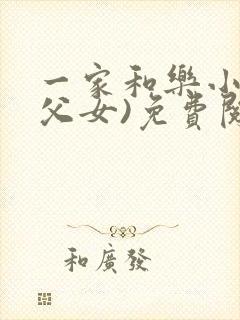 一家和樂小
父女)免費
和廣發